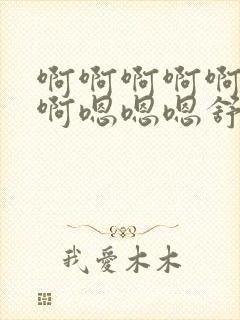 啊啊啊啊啊
啊嗯嗯嗯舒
我爱木木